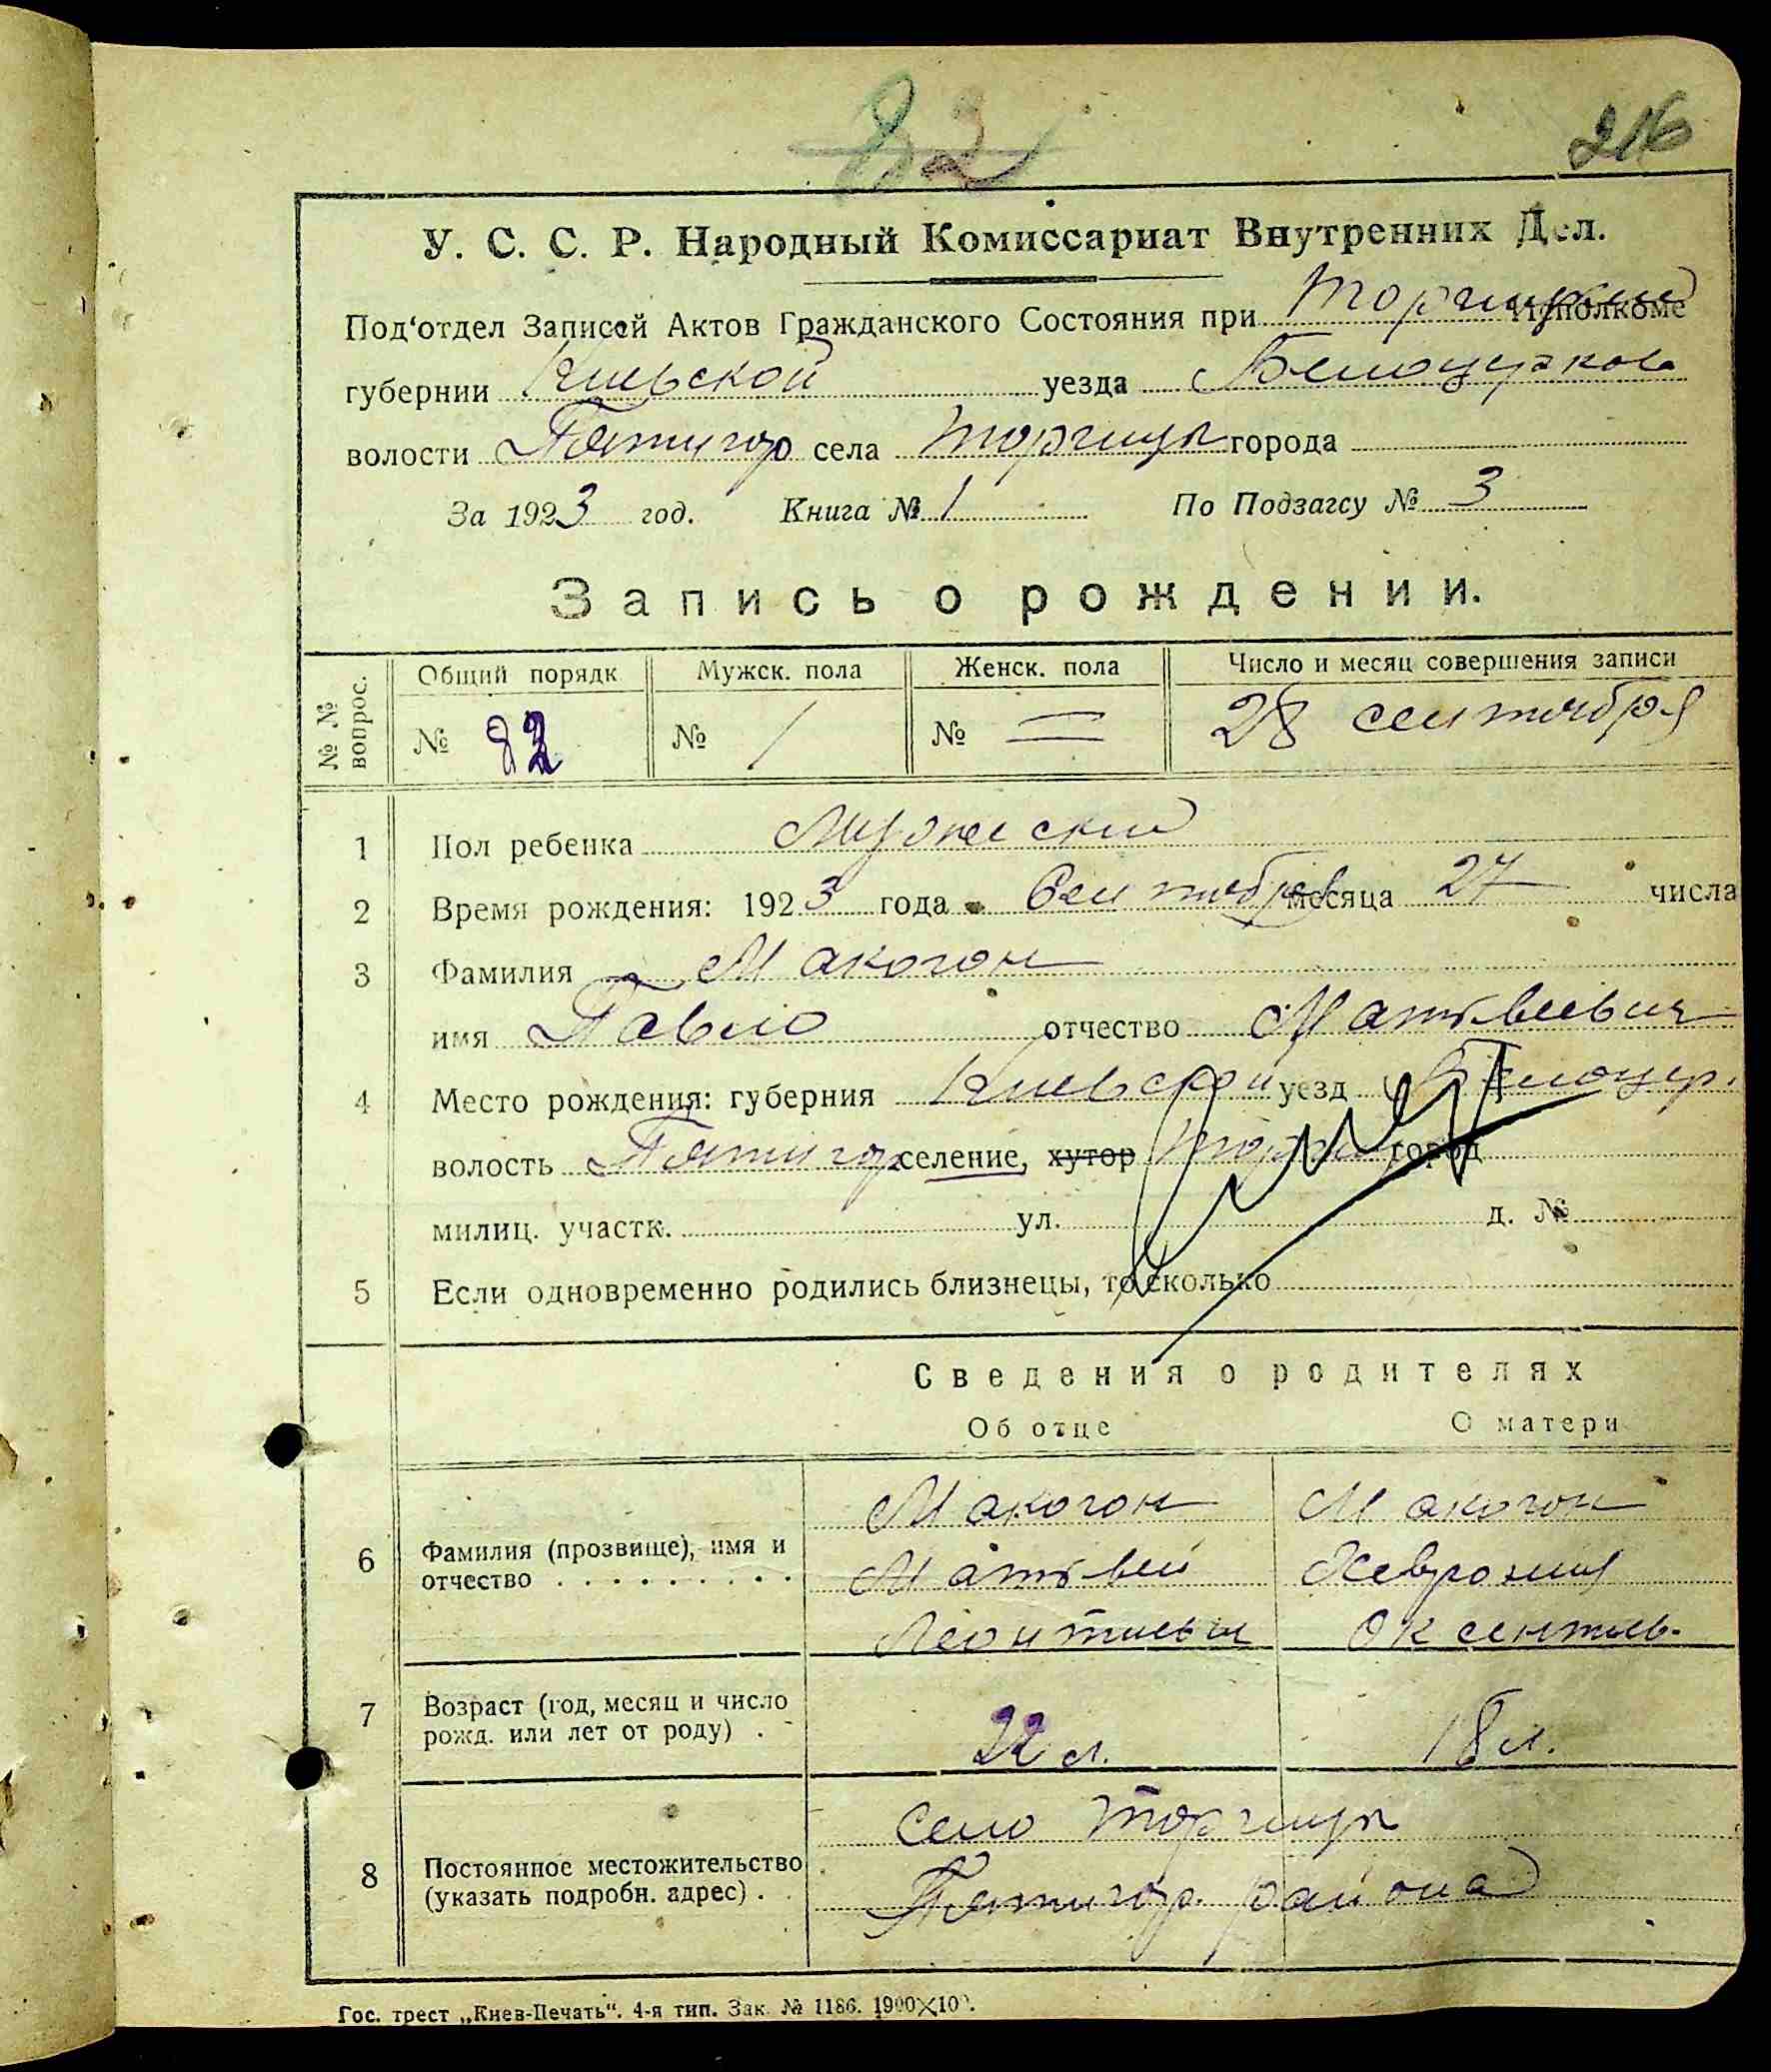 82
216
У. С. С. Р. Народный Комиссариат Внутренних Дел.
Под‘отдел Записей Актов Гражданского Состояния при Торчицком Исполкоме
губернии Киевской уезда Белоцерков
волости Пятигор села Торчицы города
За 1923 год. Книга № 1 По Подзагсу № 3
Запись о рождении.
№ № вопрос. Общий порядк Мужск. пола Женск. пола Число и месяц совершения записи
№ 82 № / № = 28 сентября
1 Пол ребенка Мужеский
2 Время рождения: 1923 года Сентября месяца 27 числа
3 Фамилия Макогон
имя Павло отчество Матвеевич
4 Место рождения: губерния Киевской уезд Белоцер.
волость Пятигор селение, хутор город
милиц. участк. ул. д. №
5 Если одновременно родились близнецы, то сколько
Сведения о родителях
Об отце О матери
Макогон Макогон
6 Фамилия (прозвище), имя и отчество Матвей
Леонтиевич Оксентиев.
7 Возраст (год, месяц и число рожд. или лет от роду) . 22 л. 18 л.
село Торчицы
8 Постоянное местожительство (указать подробн. адрес) . Пятигор. района
Гос. трест „Киев-Печать“. 4-я тип. Зак. № 1186. 1900×100.